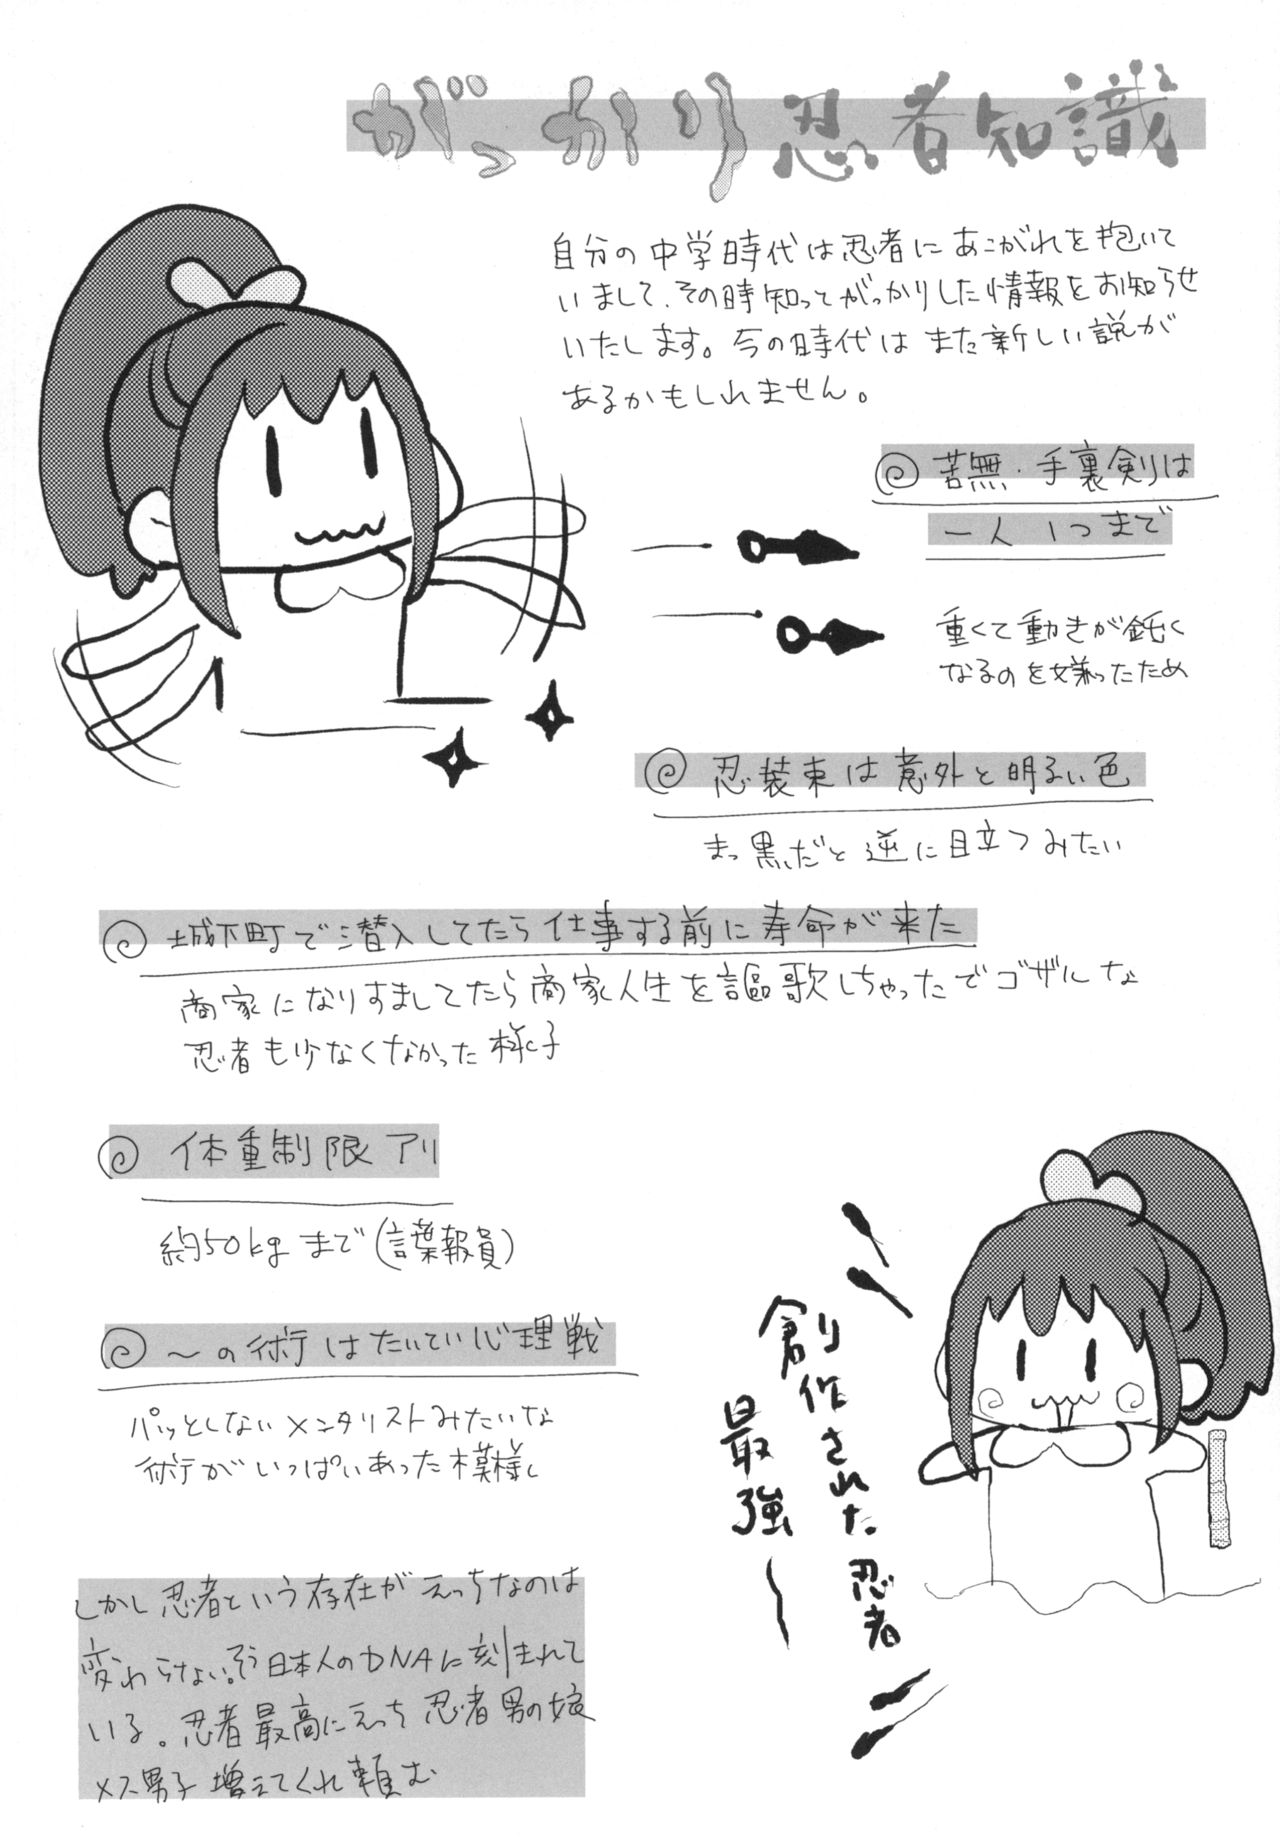 がっかり忍者知識
自分の中学時代は忍者にあこがれを抱いて
いまして、その時知ってがっかりした情報をお知らせ
いたします。今の時代はまた新しい説が
あるかもしれません。
苦無・手裏剣は
一人1つまで
重くて動きが鈍く
なるのを嫌ったため
忍装束は意外と明るい色
まっ黒だと逆に目立つみたい
城下町で潜入してたら仕事する前に寿命が来た
商家になりすましてたら商家人生を謳歌しちゃったでゴザルな
忍者も少なくなかった様子
体重制限アリ
約50kgまで(諜報員)
〜の術はたいてい心理戦
パッとしないメンタリストみたいな
術がいっぱいあった模様
創作された忍者
最強〜
しかし忍者という存在がえっちなのは
変わらない。そう日本人のDNAに刻まれて
いる。忍者最高にえっち忍者男の娘
メス男子増えてくれ頼む